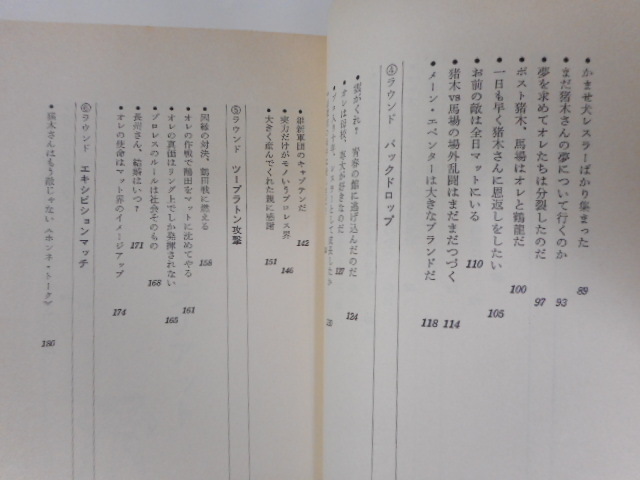 • かませ犬レスラーばかり集まった 89
• まだ猪木さんの夢について行くのか 93
• 夢を求めてオレたちは分裂したのだ 97
• ポスト猪木、馬場はオレと鶴龍だ 100
• 一日も早く猪木さんに恩返しをしたい 105
• お前の敵は全日マットにいる 110
• 猪木vs馬場の場外乱闘はまだまだつづく 114
• メーン・エベンターは大きなブランドだ 118
④ラウンド バックドロップ
• 雲がくれ? 青春の館に逃げ込んだのだ 124
• オレは母校、専大が好きなのだ 127
• 維新軍団のキャプテンだ 142
• 実力だけがモノいうプロレス界 146
• 大きく産んでくれた親に感謝 151
⑤ラウンド ツープラトン攻撃
• 因縁の対決、鶴田戦に燃える 158
• オレの作戦で鶴田をマットに沈めてやる 161
• オレの真価はリング上でしか発揮されない 165
• プロレスのルールは社会そのもの 168
• 長州さん、結婚はいつ? 171
• オレの使命はマット界のイメージアップ 174
⑥ラウンド エキシビションマッチ
• 猪木さんはもう敵じゃない《ホンネ・トーク》 180